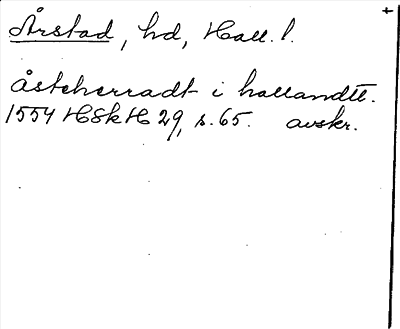 +
Årstad, hd, Hall. l.
åsteherradt i hallandtt.
1554 HSkH 29, s. 65. avskr.